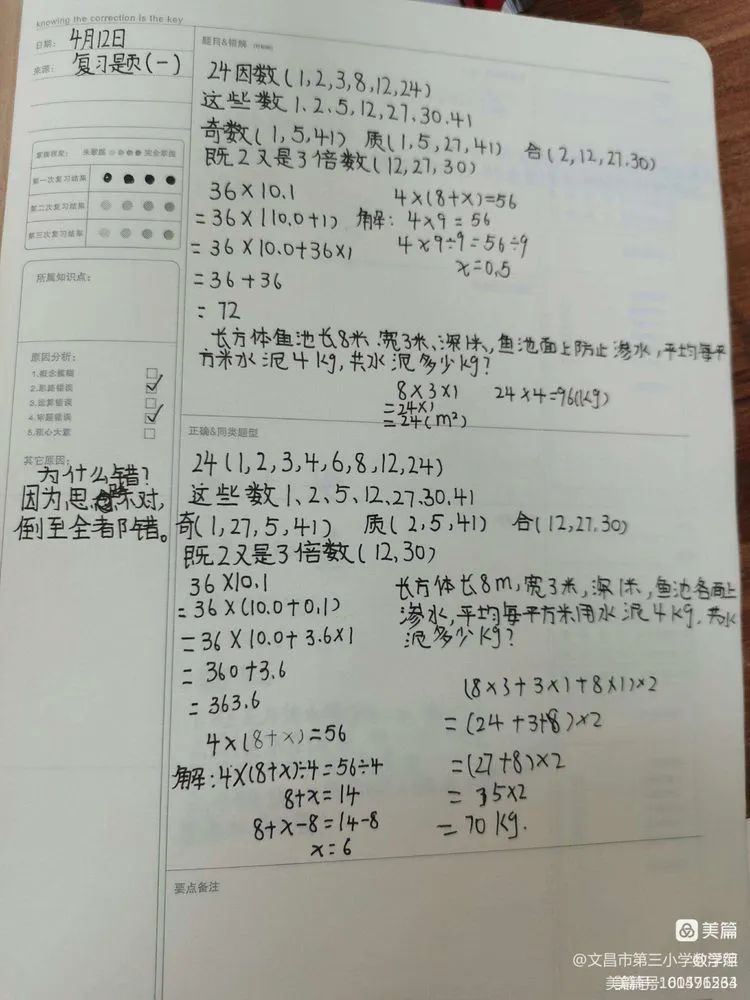 knowing the correction is the key
日期: 4月12日
来源: 复习题(一)
题目&错解
24因数(1,2,3,8,12,24)
这些数1.2.5,12,27.30.41
奇数(1,5,41) 质(1,5,27,41) 合(2,12,27.30)
既2又是3倍数(12,27,30)
36×10.1
=36×(10.0+1)
=36×10.0+36×1
=36+36
=72
4×(8+x)=56
解: 4×9=56
4×9÷9=56÷9
x=0.5
长方体鱼池长8米、宽3米、深1米、鱼池面上防止渗水,平均每平
方米水泥4kg,共水泥多少kg?
8×3×1
=24×1
=24(m²)
24×4=96(kg)
掌握程度: 未掌握 完全掌握
第一次复习结果
第二次复习结果
第三次复习结果
所属知识点:
原因分析:
1.概念模糊
2.思路错误
3.运算错误
4.审题错误
5.粗心大意
其它原因:
为什么错?
因为思路不对,
倒至全都错。
正确&同类题型
24(1,2,3,4,6,8,12,24)
这些数1、2、5、12、27.30.41
奇(1,27,5,41) 质(2,5,41) 合(12,27.30)
既2又是3倍数(12,30)
36×10.1
=36×(10.0+0.1)
=36×10.0+3.6×1
=360+3.6
=363.6
4×(8+x)=56
解:4×(8+x)÷4=56÷4
8+x=14
8+x-8=14-8
x=6
长方体长8m,宽3米,深1米,鱼池各面上
渗水,平均每平方米用水泥4kg,共水
泥多少kg?
(8×3+3×1+8×1)×2
=(24+3+8)×2
=(27+8)×2
=35×2
=70kg.
要点备注
美篇
@文昌市第三小学
美篇号: